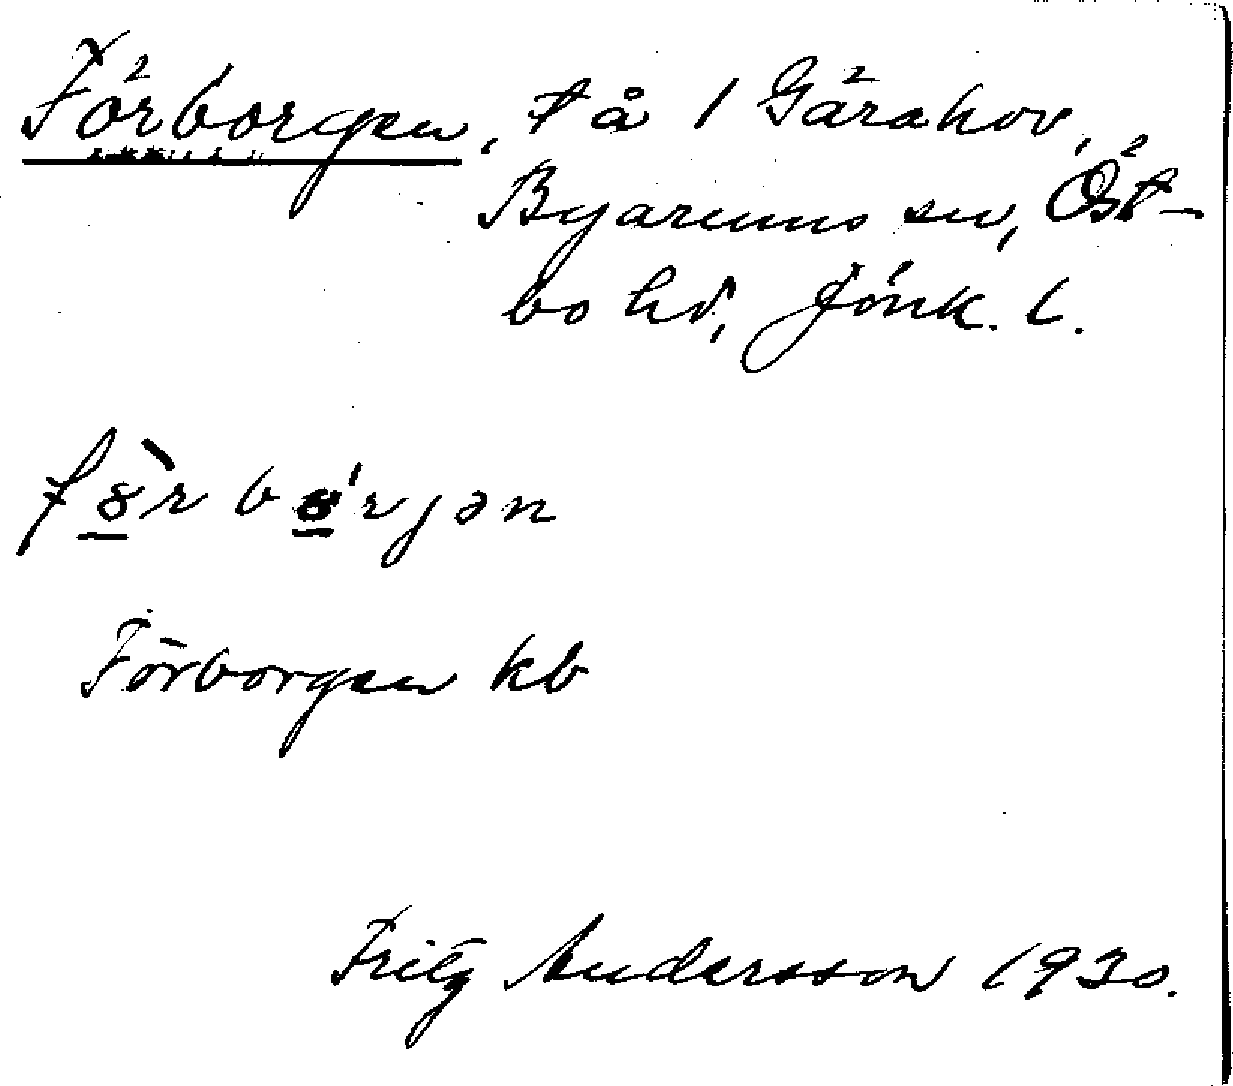 Förborgen, t å 1 Gärahov,
Byarums sn, Öst-
bo hd, Jönk. l.
fȣ̀rbȣ́rjən
Förborgen kb
Fritz Andersson 1930.